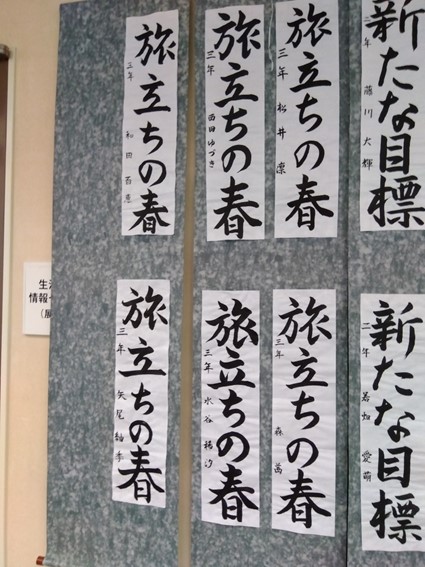 新たな目標
二年 藤川大輝
旅立ちの春
三年 松井凛
旅立ちの春
三年 西田ゆづき
旅立ちの春
三年 和田百恵
新たな目標
二年 若畑愛萌
旅立ちの春
三年 森茜
旅立ちの春
三年 水谷稀汐
旅立ちの春
三年 矢尾紬季
生
情報